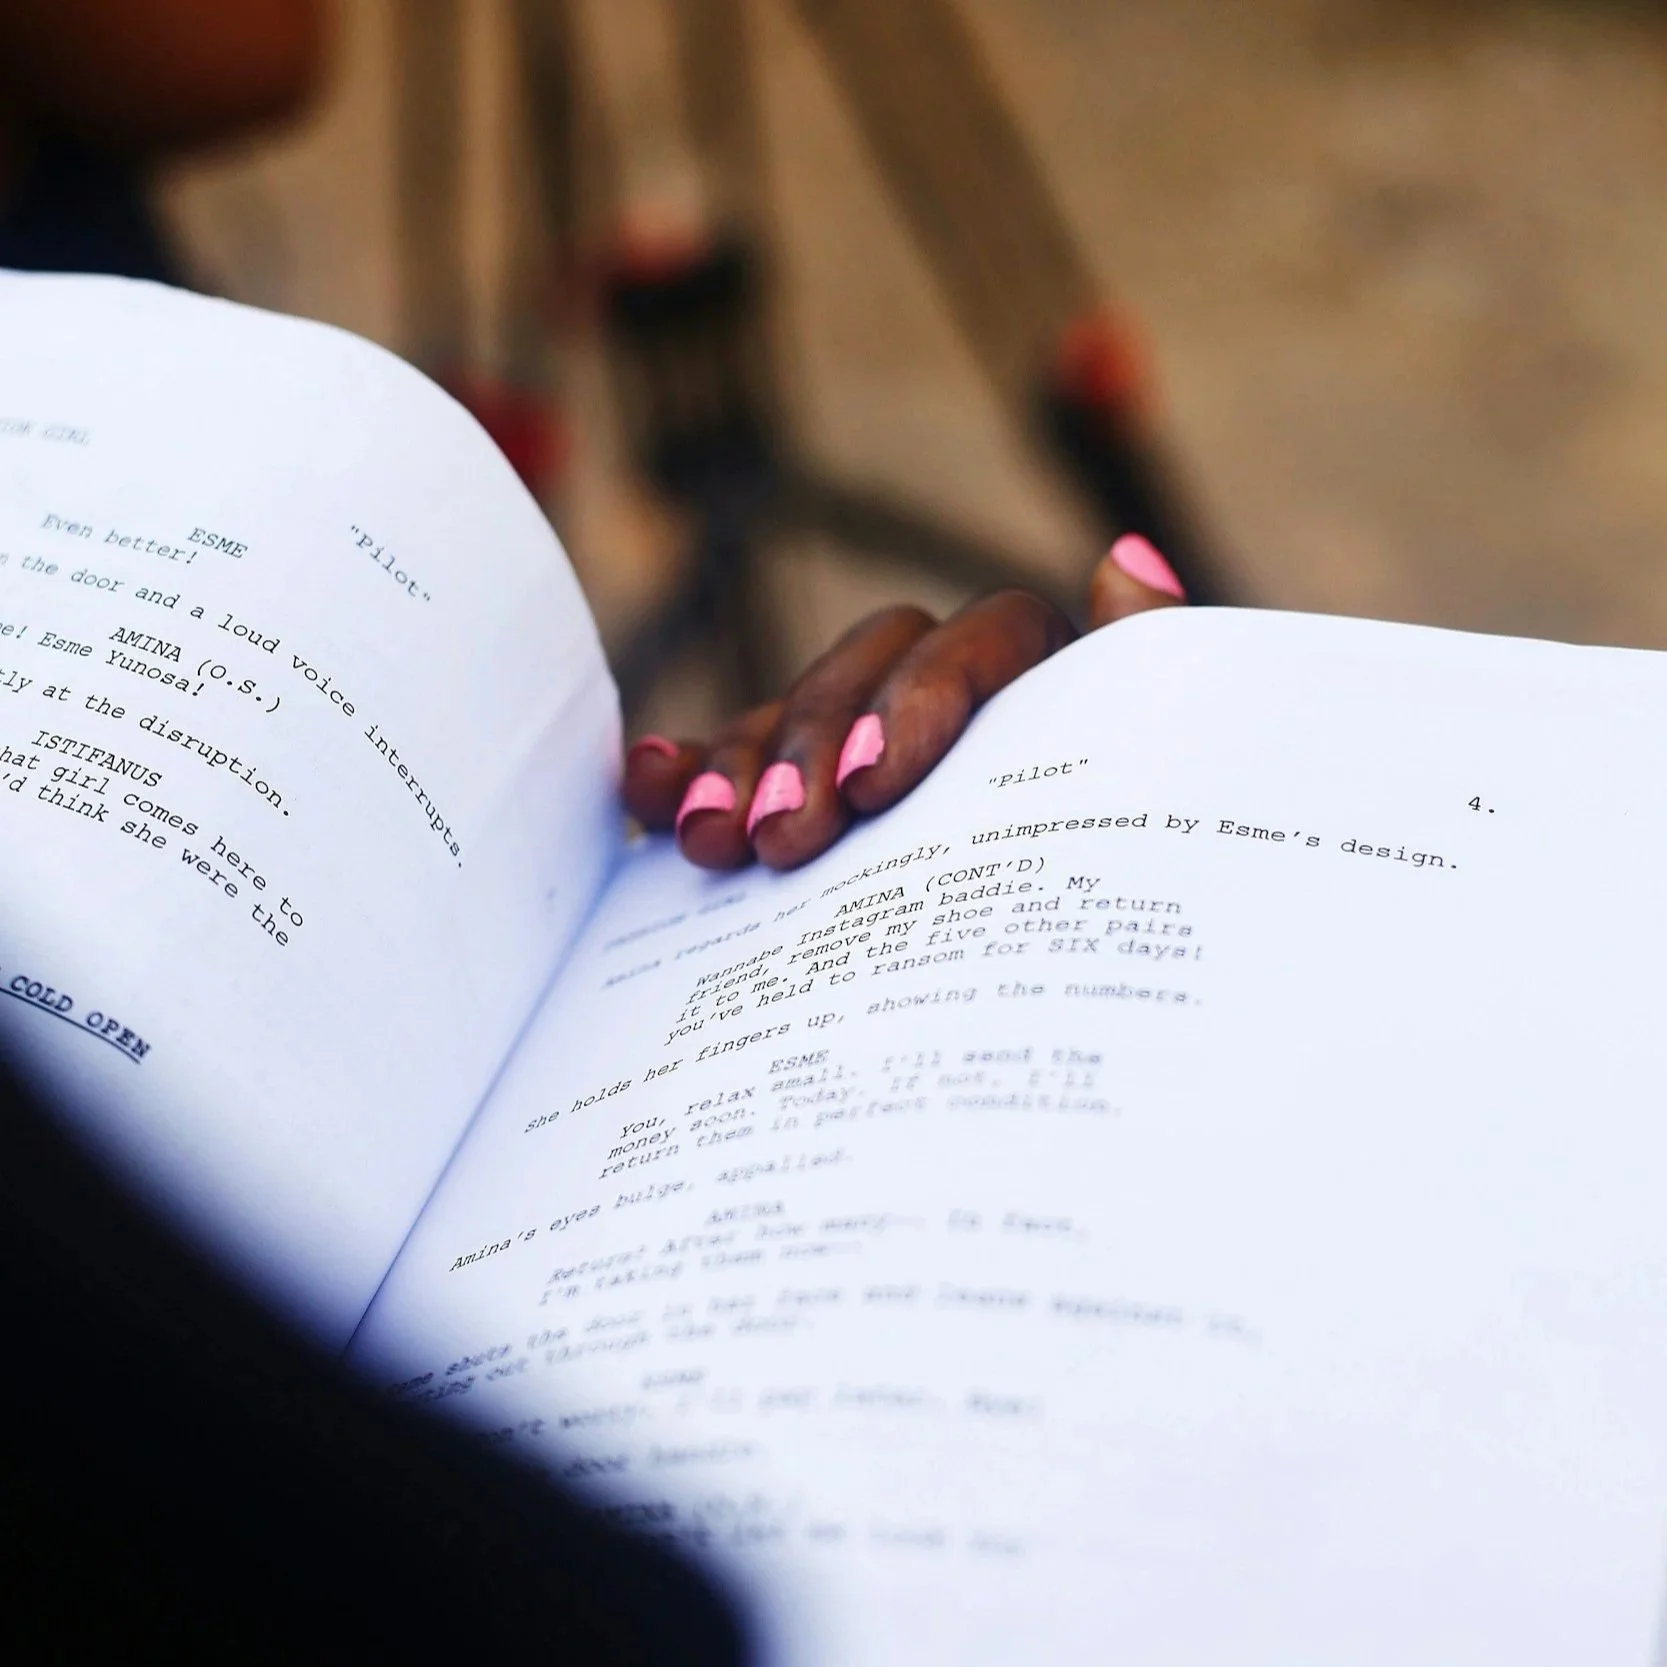 GIRL
"Pilot"
ESME
Even better!
the door and a loud voice interrupts.
AMINA (O.S.)
Esme Yunosa!
at the disruption.
ISTIFANUS
girl comes here to
'd think she were the
COLD OPEN
"Pilot"
4.
Amina regards her mockingly, unimpressed by Esme's design.
AMINA (CONT'D)
Wannabe Instagram baddie. My
friend, remove my shoe and return
it to me. And the five other pairs
you've held to ransom for SIX days!
She holds her fingers up, showing the numbers.
ESME
You, relax small. I'll send the
money soon. Today. If not, I'll
return them in perfect condition.
Amina's eyes bulge, appalled.
AMINA
Return? After how many-- In fact,
I'm taking them now--
shuts the door in her face and leans against it,
out through the door.
worry. I'll pay later. Now!
door handle.